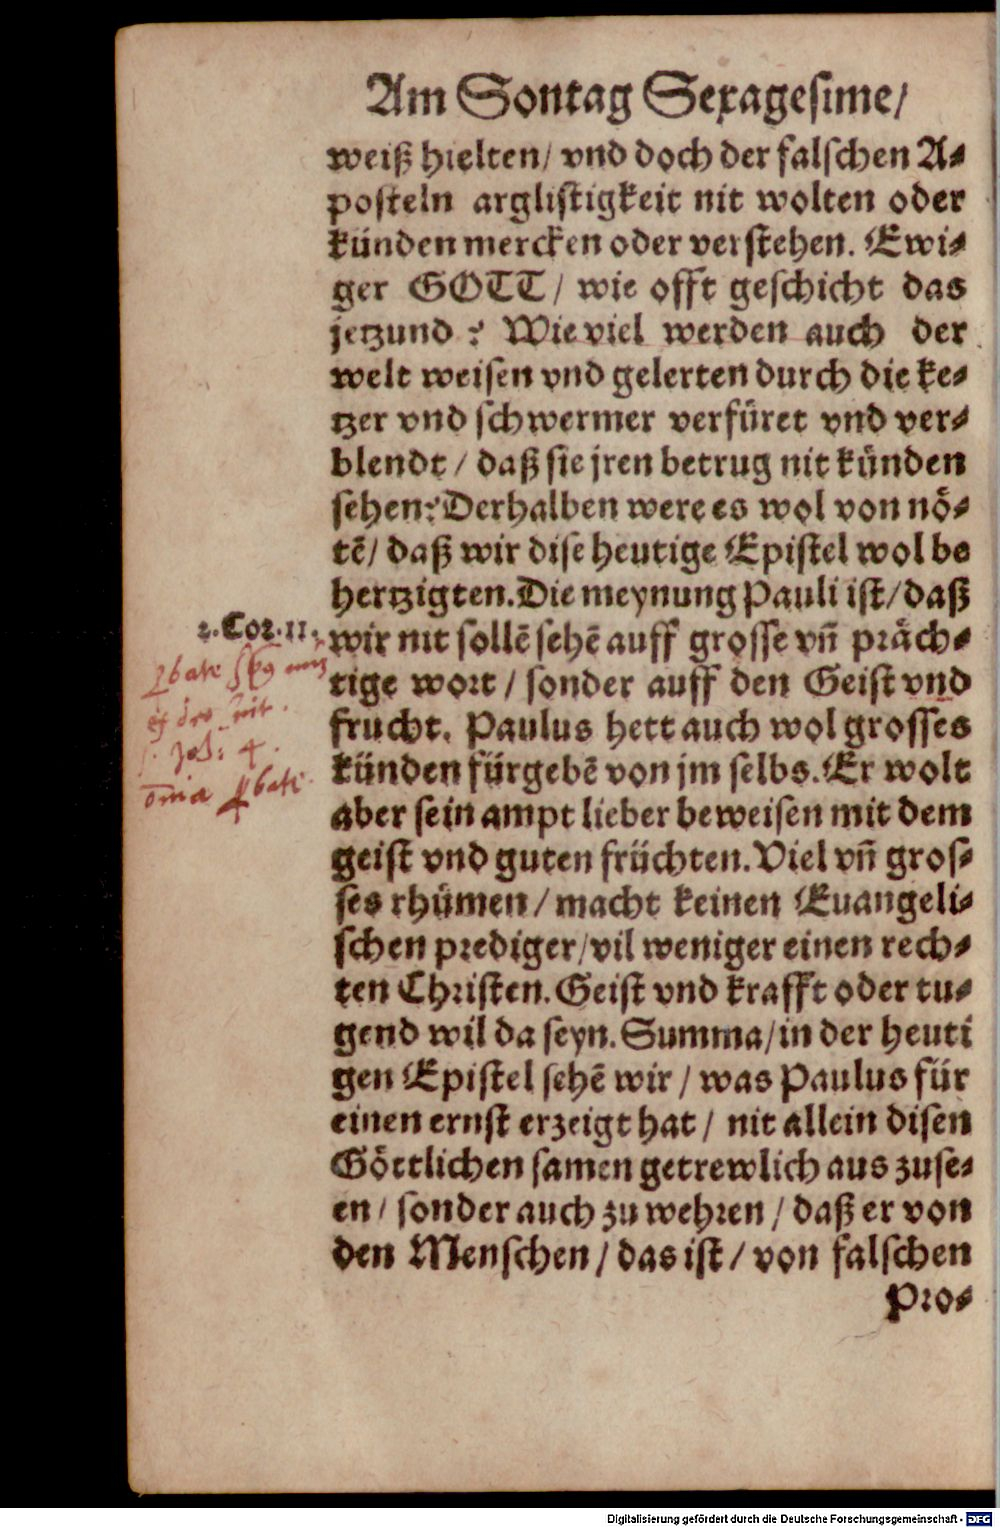 Am Sontag Sexagesime/
weiß hielten/ vnd doch der falschen A-
posteln arglistigkeit nit wolten oder
künden mercken oder verstehen. Ewi-
ger GOTT/ wie offt geschicht das
jetzund? Wie viel werden auch der
welt weisen vnd gelerten durch die ke-
tzer vnd schwermer verfüret vnd ver-
blendt/ daß sie jren betrug nit künden
sehen? Derhalben were es wol von nö-
tē/ daß wir dise heutige Epistel wol be
hertzigten. Die meynung Pauli ist/ daß
2. Cor. 11.
wir nit sollē sehē auff grosse vñ präch-
tige wort/ sonder auff den Geist vnd
frucht. Paulus hett auch wol grosses
künden fürgebē von jm selbs. Er wolt
aber sein ampt lieber beweisen mit dem
geist vnd guten früchten. Viel vñ gros-
ses rhümen/ macht keinen Euangeli-
schen prediger/ vil weniger einen rech-
ten Christen. Geist vnd krafft oder tu-
gend wil da seyn. Summa/ in der heuti
gen Epistel sehē wir/ was Paulus für
einen ernst erzeigt hat/ nit allein disen
Göttlichen samen getrewlich aus zuse-
en/ sonder auch zu wehren/ daß er von
den Menschen/ das ist/ von falschen
Pro-
Digitalisierung gefördert durch die Deutsche Forschungsgemeinschaft - DFG